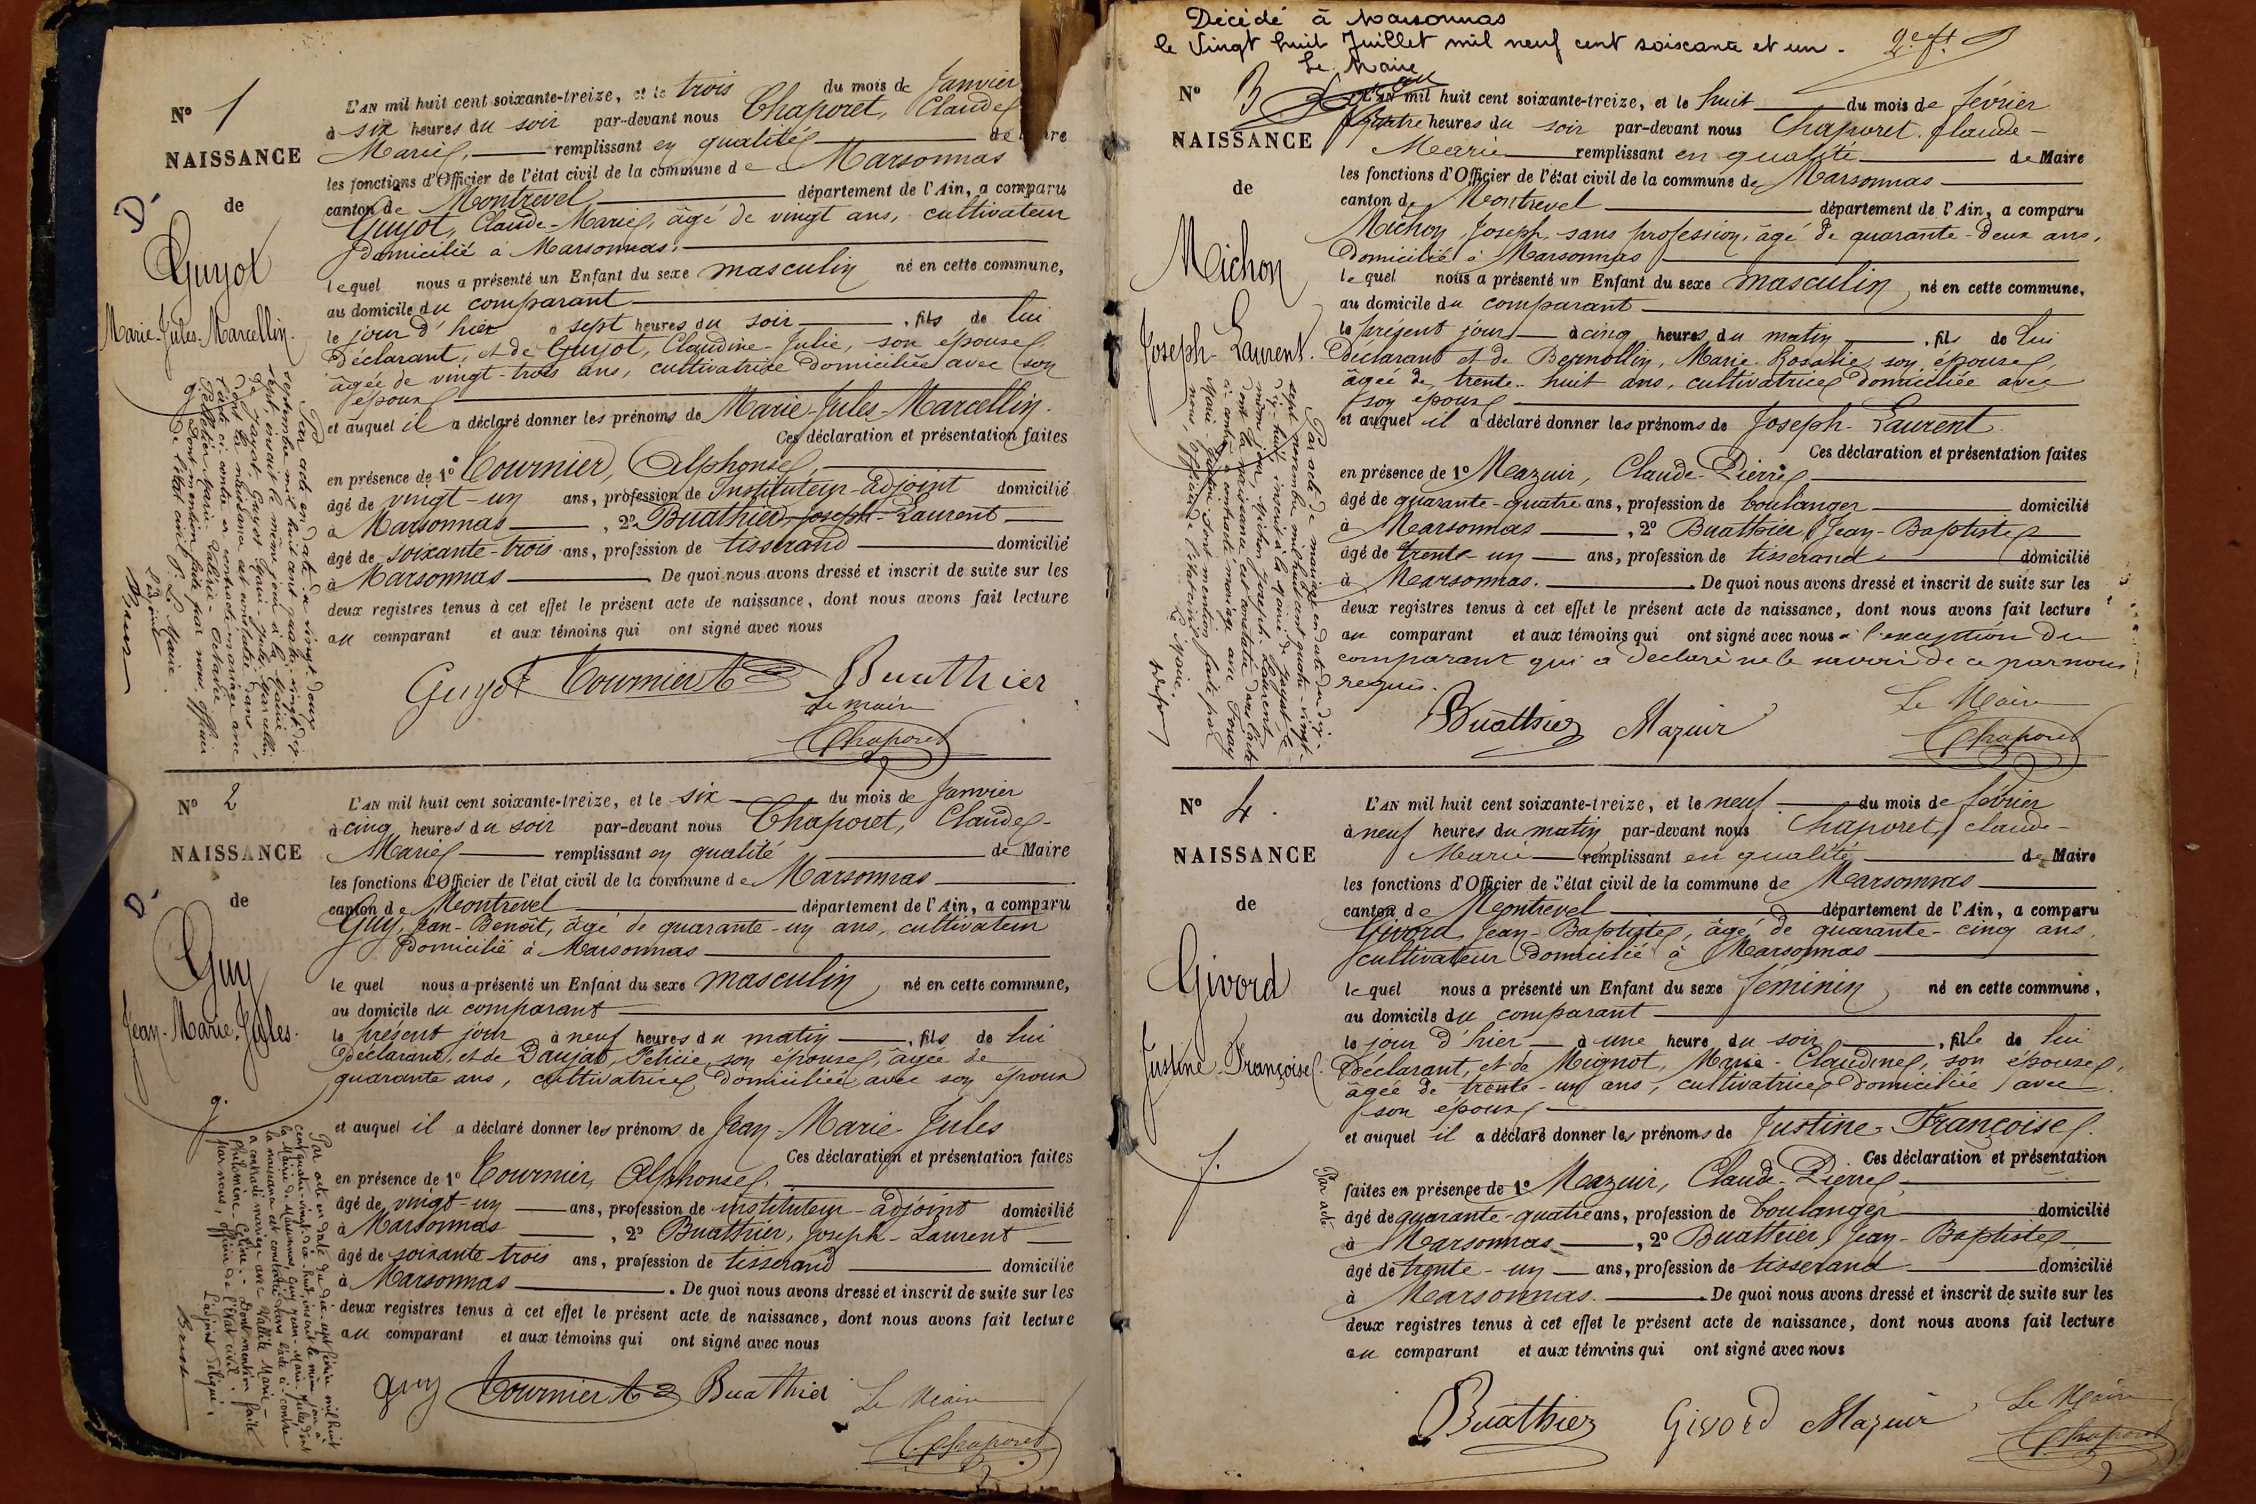 N° 1
NAISSANCE
de
D.
Guyot
Marie-Jules-Marcellin.
g.
L'AN mil huit cent soixante-treize, et le trois du mois de Janvier
à six heures du soir par-devant nous Chaporet, Claude
Marie, remplissant en qualité de
les fonctions d'Officier de l'état civil de la commune de Marsonnas
canton de Montrevel département de l'Ain, a comparu
Guyot, Claude-Marie, âgé de vingt ans, cultivateur
domicilié à Marsonnas.
lequel nous a présenté un Enfant du sexe masculin né en cette commune,
au domicile du comparant
le jour d'hier à sept heures du soir, fils de lui
Déclarant, et de Guyot, Claudine-Julie, son épouse,
âgée de vingt-trois ans, cultivatrice domiciliée avec son
époux
et auquel il a déclaré donner les prénoms de Marie-Jules-Marcellin.
Ces déclaration et présentation faites
en présence de 1° Tournier, Alphonse,
âgé de vingt-un ans, profession de Instituteur-adjoint domicilié
à Marsonnas, 2° Buathier Joseph-Laurent
âgé de soixante-trois ans, profession de tisserand domicilié
à Marsonnas. De quoi nous avons dressé et inscrit de suite sur les
deux registres tenus à cet effet le présent acte de naissance, dont nous avons fait lecture
au comparant et aux témoins qui ont signé avec nous
Guyot Tournier A Buathier
Le maire
Chaporet
Par acte en date du vingt-deux
septembre mil huit cent quatre-vingt dix
sept, inscrit le même jour à la Mairie
de Jayat, Guyot Marie-Jules-Marcellin
dont la naissance est constatée dans
l'acte ci-contre a contracté mariage avec
Pelletier Marie-Valérie-Octavie
Dont mention faite par nous, officier
de l'état civil.
Le Maire.
N° 2
NAISSANCE
de
D.
Guy
Jean-Marie-Jules.
g.
L'AN mil huit cent soixante-treize, et le six du mois de Janvier
à cinq heures du soir par-devant nous Chaporet, Claude-
Marie remplissant en qualité de Maire
les fonctions d'Officier de l'état civil de la commune de Marsonnas
canton de Montrevel département de l'Ain, a comparu
Guy, Jean-Benoît, âgé de quarante-un ans, cultivateur
domicilié à Marsonnas
lequel nous a présenté un Enfant du sexe masculin né en cette commune,
au domicile du comparant
le présent jour à neuf heures du matin, fils de lui
déclarant, et de Daujat, Félicie, son épouse, âgée de
quarante ans, cultivatrice domiciliée avec son époux
et auquel il a déclaré donner les prénoms de Jean-Marie-Jules
Ces déclaration et présentation faites
en présence de 1° Tournier, Alphonse,
âgé de vingt-un ans, profession de instituteur-adjoint domicilié
à Marsonnas, 2° Buathier, Joseph-Laurent
âgé de soixante-trois ans, profession de tisserand domicilié
à Marsonnas. De quoi nous avons dressé et inscrit de suite sur les
deux registres tenus à cet effet le présent acte de naissance, dont nous avons fait lecture
au comparant et aux témoins qui ont signé avec nous
guy Tournier A Buathier Le Maire
Chaporet
Par acte en date du dix-sept février mil huit
cent quatre-vingt-dix-huit, inscrit le même jour à
la Mairie de Marsonnas, Guy Jean-Marie-Jules, dont
la naissance est constatée dans l'acte ci-contre
a contracté mariage avec Marie-
Philomène Dont mention faite
par nous, officier de l'état civil.
L'adjoint délégué,
Décédé à Marsonnas
le Vingt huit Juillet mil neuf cent soixante et un.
Le Maire
2e ft
N° 3
NAISSANCE
de
Michon
Joseph-Laurent.
L'AN mil huit cent soixante-treize, et le huit du mois de février
à quatre heures du soir par-devant nous Chaporet, Claude-
Marie remplissant en qualité de Maire
les fonctions d'Officier de l'état civil de la commune de Marsonnas
canton de Montrevel département de l'Ain, a comparu
Michon, Joseph, sans profession, âgé de quarante-deux ans,
Domicilié à Marsonnas
lequel nous a présenté un Enfant du sexe masculin né en cette commune,
au domicile du comparant
le présent jour à cinq heures du matin, fils de lui
Déclarant et de Bernollin, Marie-Rosalie, son épouse,
âgée de trente-huit ans, cultivatrice domiciliée avec
son époux
et auquel il a déclaré donner les prénoms de Joseph-Laurent.
Ces déclaration et présentation faites
en présence de 1° Mazuir, Claude-Pierre,
âgé de quarante-quatre ans, profession de boulanger domicilié
à Marsonnas, 2° Buathier, Jean-Baptiste
âgé de trente-un ans, profession de tisserand domicilié
à Marsonnas. De quoi nous avons dressé et inscrit de suite sur les
deux registres tenus à cet effet le présent acte de naissance, dont nous avons fait lecture
au comparant et aux témoins qui ont signé avec nous à l'exception du
comparant qui a déclaré ne le savoir de ce par nous
requis.
Buathier Mazuir Le Maire
Chaporet
Par acte de mariage en date du dix-
sept novembre mil huit cent quatre-vingt-
dix-huit, inscrit à la Mairie de Jayat le
même jour, Michon Joseph-Laurent
dont la naissance est constatée dans l'acte
ci-contre a contracté mariage avec
Marie Dont mention faite par
nous, officier de l'état civil.
Le Maire,
N° 4.
NAISSANCE
de
Givord
Justine-Françoise.
f.
Par acte
L'AN mil huit cent soixante-treize, et le neuf du mois de février
à neuf heures du matin par-devant nous Chaporet, Claude-
Marie remplissant en qualité de Maire
les fonctions d'Officier de l'état civil de la commune de Marsonnas
canton de Montrevel département de l'Ain, a comparu
Givord, Jean-Baptiste, âgé de quarante-cinq ans,
cultivateur domicilié à Marsonnas
lequel nous a présenté un Enfant du sexe féminin né en cette commune,
au domicile du comparant
le jour d'hier à une heure du soir, fille de lui
Déclarant, et de Mignot, Marie-Claudine, son épouse,
âgée de trente-un ans, cultivatrice domiciliée avec
son époux
et auquel il a déclaré donner les prénoms de Justine-Françoise.
Ces déclaration et présentation
faites en présence de 1° Mazuir, Claude-Pierre
âgé de quarante-quatre ans, profession de boulanger domicilié
à Marsonnas, 2° Buathier, Jean-Baptiste
âgé de trente-un ans, profession de tisserand domicilié
à Marsonnas. De quoi nous avons dressé et inscrit de suite sur les
deux registres tenus à cet effet le présent acte de naissance, dont nous avons fait lecture
au comparant et aux témoins qui ont signé avec nous
Buathier Givord Mazuir Le Maire
Chaporet